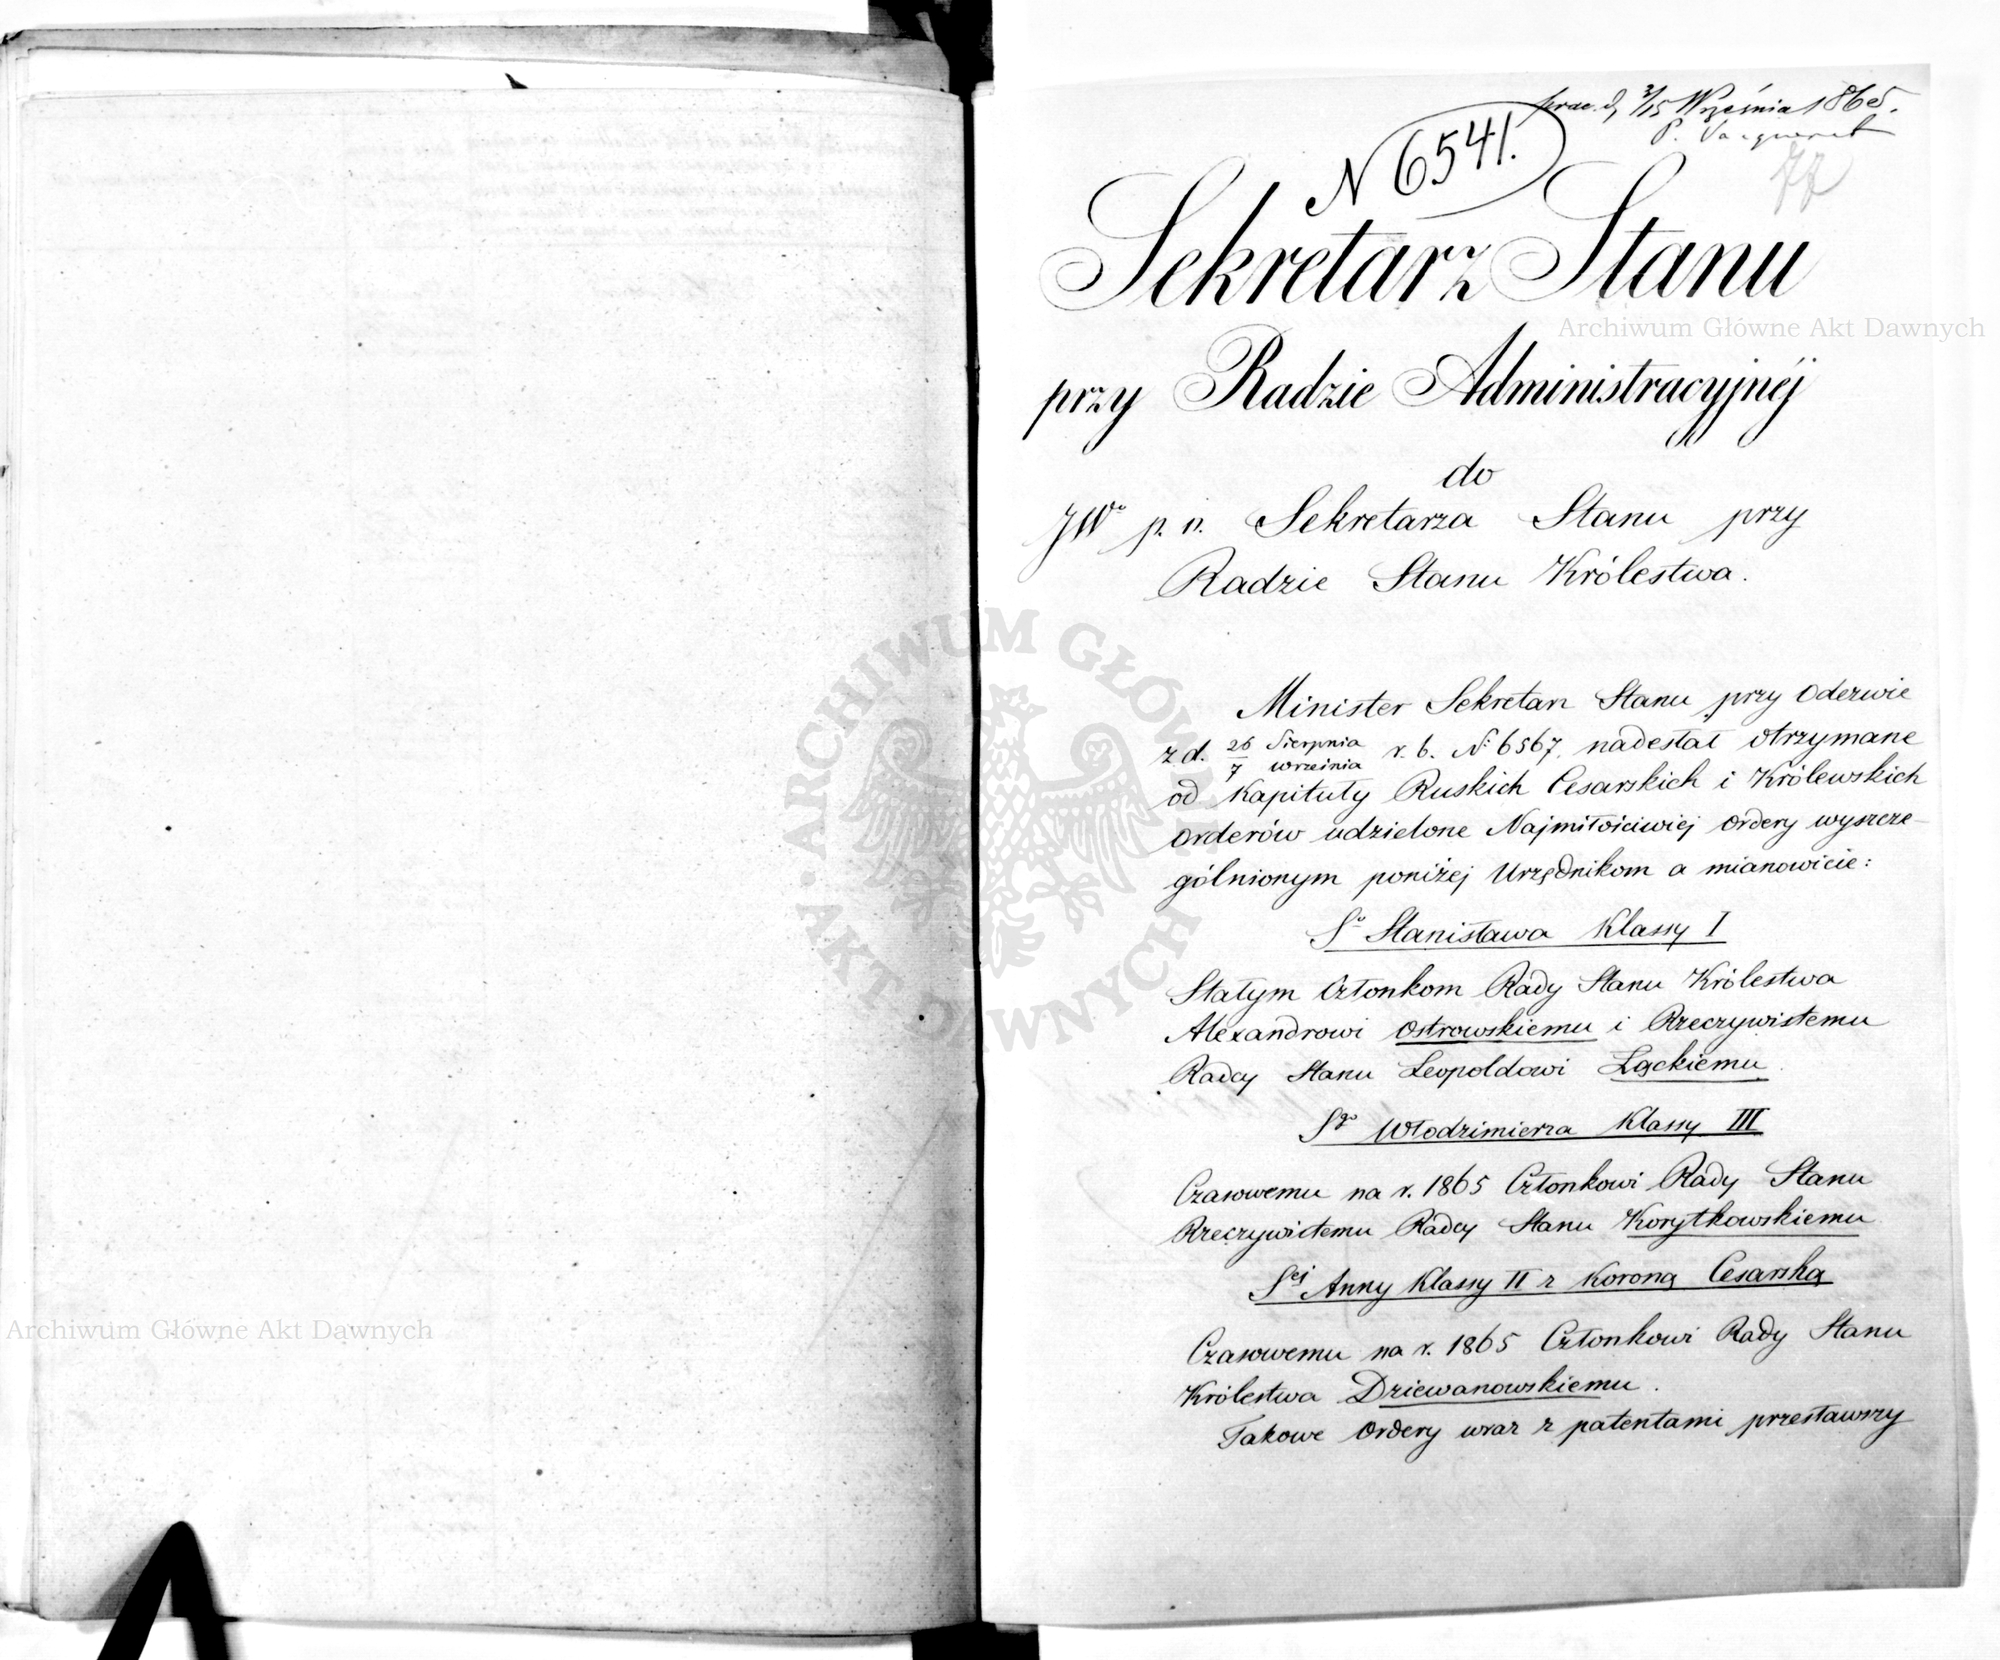 prae. d. 3/15 Września 1865.
N 6541.
77
Sekretarz Stanu
przy Radzie Administracyjnéj
do
JWo p. o. Sekretarza Stanu przy
Radzie Stanu Królestwa.
Minister Sekretarz Stanu przy Odezwie
z d. 26 Sierpnia / 7 Września r. b. N: 6567. nadesłał otrzymane
od Kapituły Ruskich Cesarskich i Królewskich
Orderów udzielone Najmiłościwiej Ordery wyszcze-
gólnionym poniżej Urzędnikom a mianowicie:
Sgo Stanisława Klassy I
Stałym Członkom Rady Stanu Królestwa
Alexandrowi Ostrowskiemu i Rzeczywistemu
Radcy Stanu Leopoldowi Łąckiemu.
Sgo Włodzimierza Klassy III
Czasowemu na r. 1865 Członkowi Rady Stanu
Rzeczywistemu Radcy Stanu Korytkowskiemu
Sej Anny Klassy II z Koroną Cesarską
Czasowemu na r. 1865 Członkowi Rady Stanu
Królestwa Dziewanowskiemu.
Takowe Ordery wraz z patentami przesławszy
Archiwum Główne Akt Dawnych
Archiwum Główne Akt Dawnych
ARCHIWUM GŁÓWNE AKT DAWNYCH